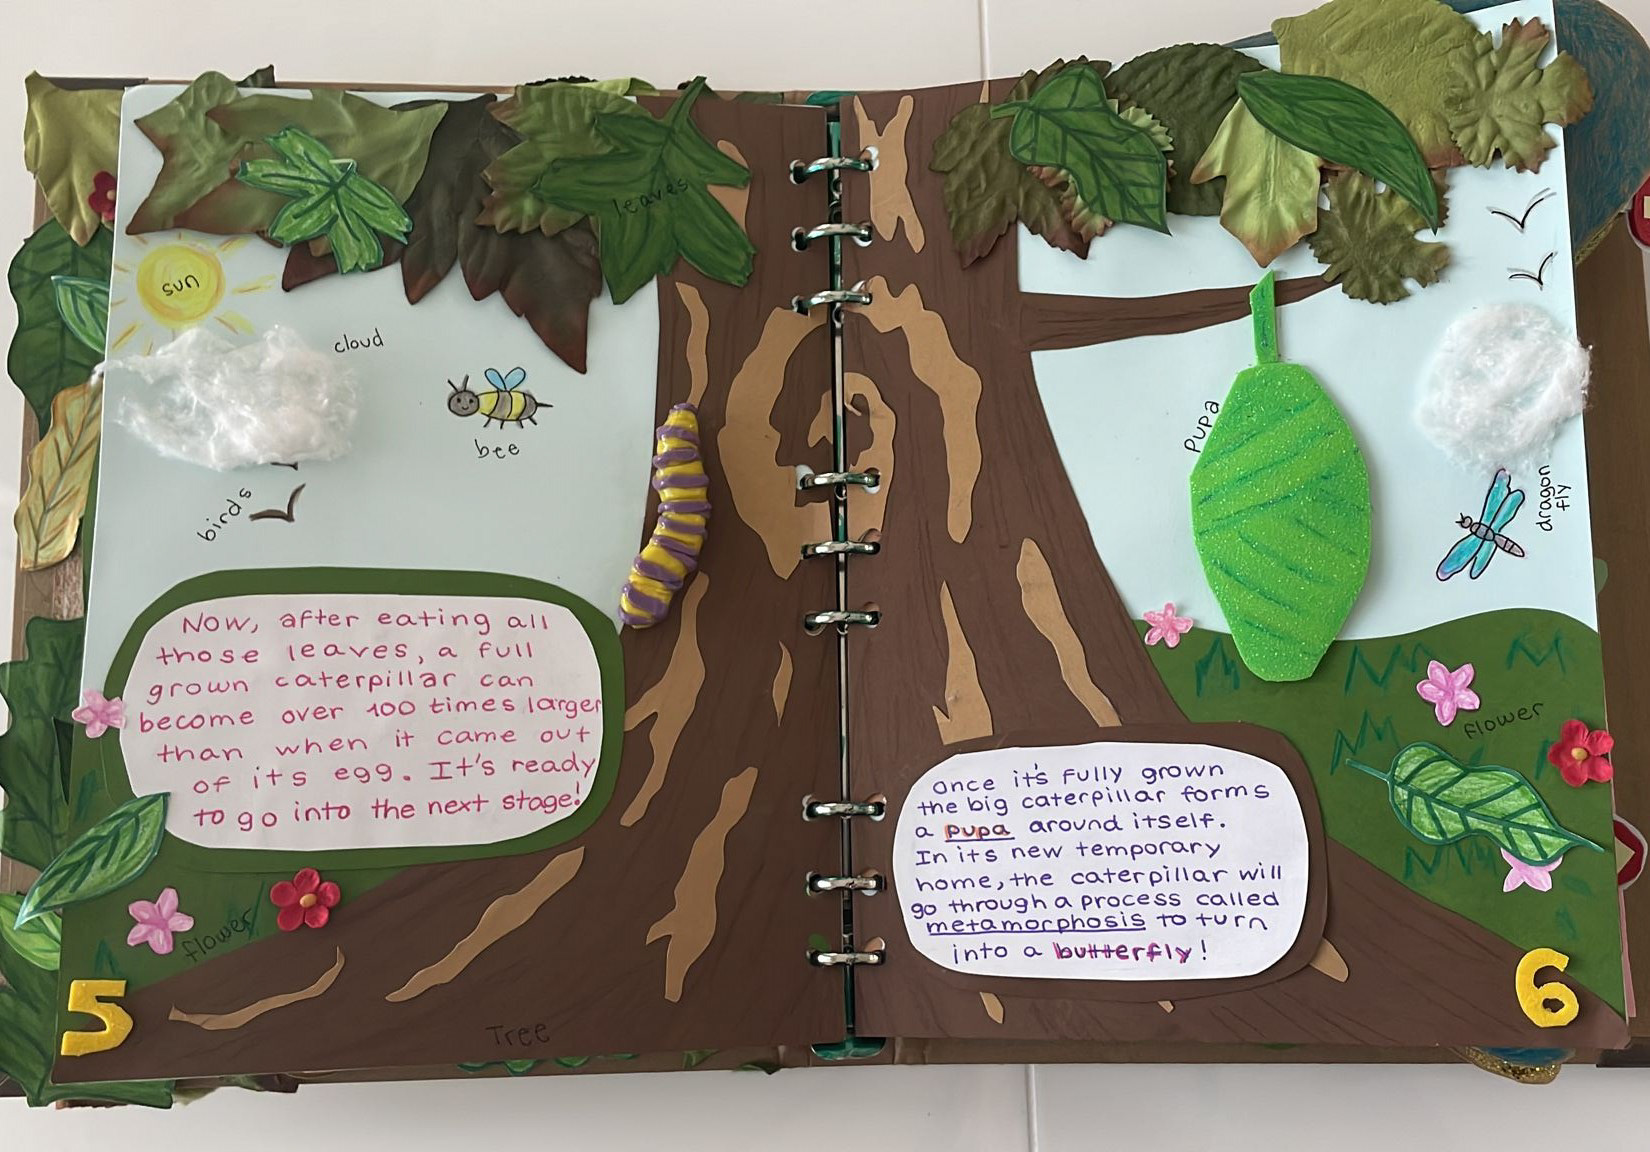 leaves
sun
cloud
bee
birds
Now, after eating all
those leaves, a full
grown caterpillar can
become over 100 times larger
than when it came out
of its egg. It's ready
to go into the next stage!
flower
5
Tree
pupa
dragon
fly
flower
Once it's fully grown
the big caterpillar forms
a pupa around itself.
In its new temporary
home, the caterpillar will
go through a process called
metamorphosis to turn
into a butterfly!
6